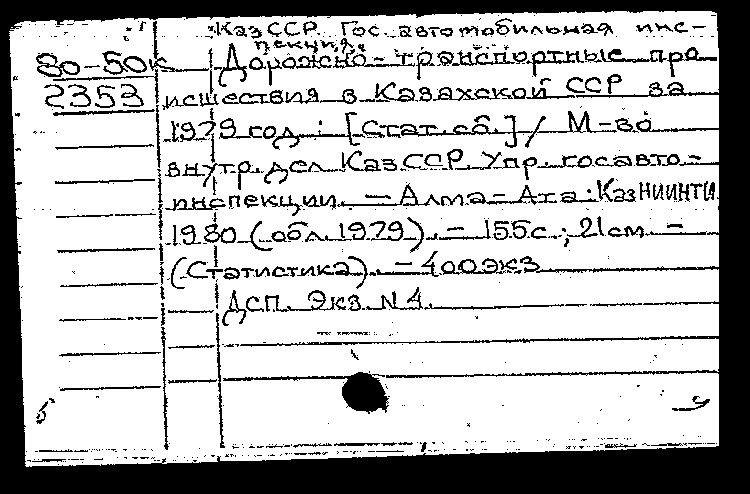 КазССР. Гос. автомобильная инс-
пекция.
80-50к Дорожно-транспортные про
2353 исшествия в Казахской ССР за
1979 год : [Стат. сб.] / М-во
внутр. дел КазССР. Упр. госавто-
инспекции. — Алма-Ата : КазНИИНТИ
1980 (обл. 1979). — 155с ; 21см. —
(Статистика). — 400экз
ДСП. Экз. N 4.